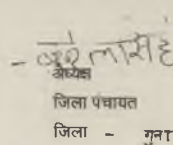 अध्यक्ष
जिला पंचायत
जिला - गुना